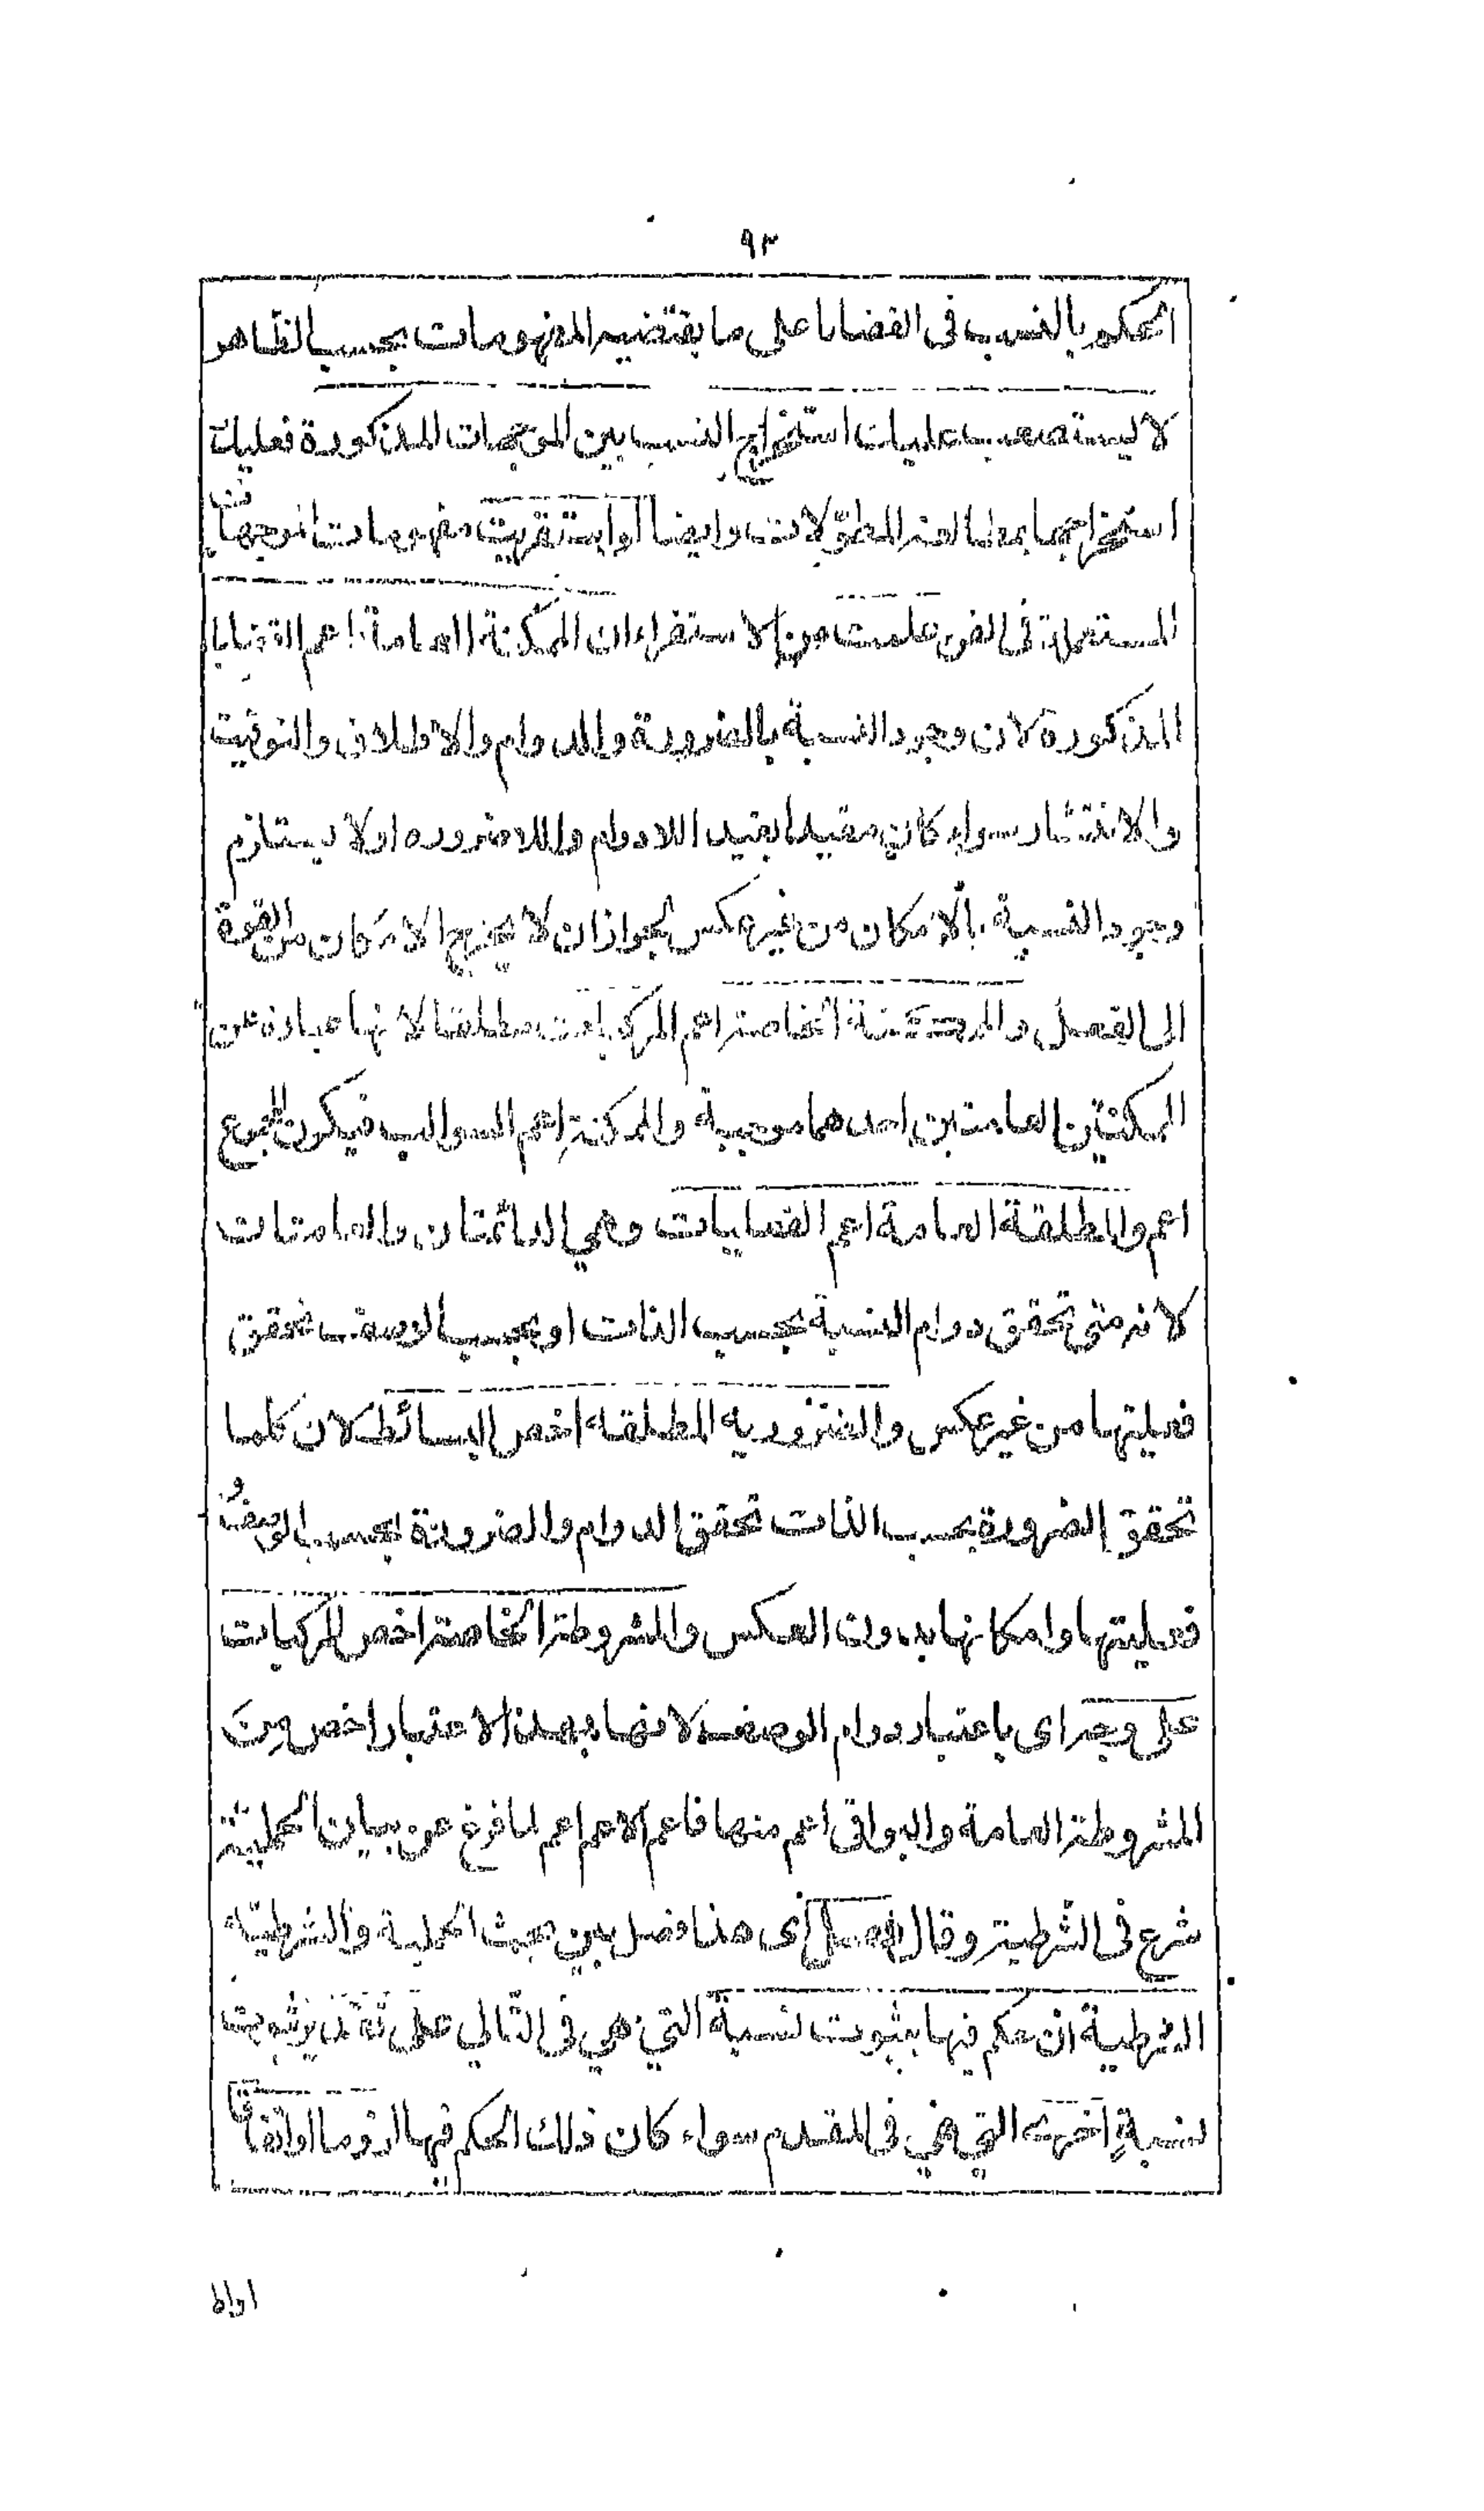 ٩٣
الحكم بالنسب فى القضايا على ما يقتضيه المفهومات بحسب الظاهر
لا يستصعب عليك استخراج النسب بين الموجهات المذكورة فعليك
استخراجها بمطالعة المطولات وايضا لو استقريت مفهومات الموجهات
المستعملة فى الفن علمت من الاستقراء ان الممكنة العامة اعم القضايا
المذكورة لان وجود النسبة بالضرورة والدوام والاطلاق والتوقيت
والانتشار سواء كان مقيدا بقيد اللادوام واللاضرورة اولا يستلزم
وجود النسبة بالامكان من غير عكس لجواز ان لا يخرج الامكان من القوة
الى الفعل والممكنة الخاصة اعم المركبات مطلقا لانها عبارة عن
الممكنتين العامتين احدهما موجبة والممكنة اعم السوالب فيكون المجموع
اعم والمطلقة العامة اعم الفعليات وهي الدائمتان والعامتان
لانه متى تحقق دوام النسبة بحسب الذات او بحسب الوصف تحقق
فعليتها من غير عكس والضرورية المطلقة اخص البسائط لان كلما
تحقق الضرورة بحسب الذات تحقق الدوام والضرورة بحسب الوصف و
فعليتها وامكانها بدون العكس والمشروطة الخاصة اخص المركبات
على وجه اى باعتبار دوام الوصف لانها بهذا الاعتبار اخص من
المشروطة العامة والبواقى اعم منها فاعم الاعم اعم لما فرغ عن بيان الحملية
شرع فى الشرطية وقال فصل اى هذا فصل بين بحث الحملية والشرطية
الشرطية ان حكم فيها بثبوت نسبة التي هي فى التالي على تقدير ثبوت
نسبة اخرى التي هي فى المقدم سواء كان ذلك الحكم فيها لزوما او اتفاقا